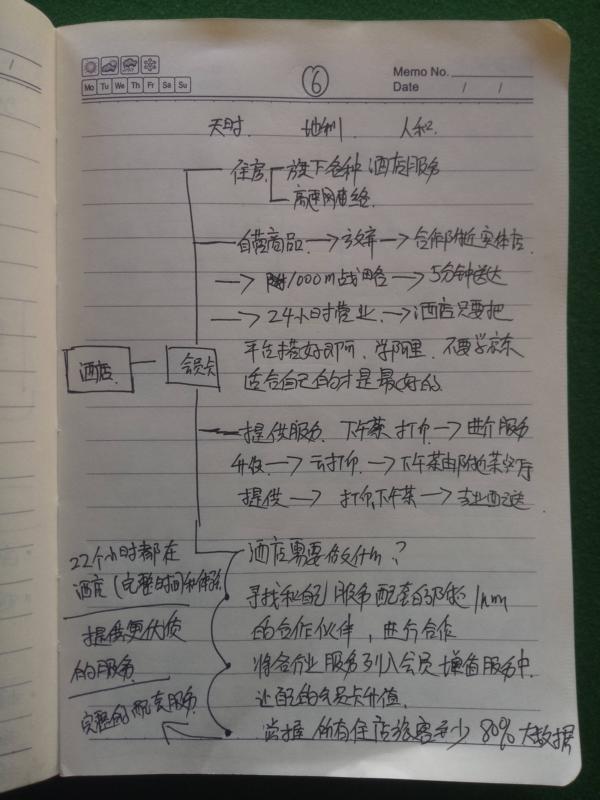 Mo Tu We Th Fr Sa Su
⑥
Memo No.
Date / /
天时 地利 人和
住房 旗下各种酒店服务
高速网络
自营商品 → 放弃 → 合作附近实体店
→ 附1000m战略 → 5分钟送达
→ 24小时营业 → 酒店只要把
平台搭好即可、学阿里、不要学京东
适合自己的才是最好的
酒店 会员卡
提供服务 下午茶 打印 → 进行服务
升级 → 云打印 → 下午茶由附近茶餐厅
提供 → 打印、下午茶 → 专业配送
酒店需要做什么?
寻找和自己服务配套的附近1km
的合作伙伴,进行合作
将各行业服务列入会员增值服务中
让自己的会员卡升值
掌握所有住店旅客至少80%大数据
22个小时都在
酒店(完整时间和体验
提供更优质
的服务
完整的配套服务